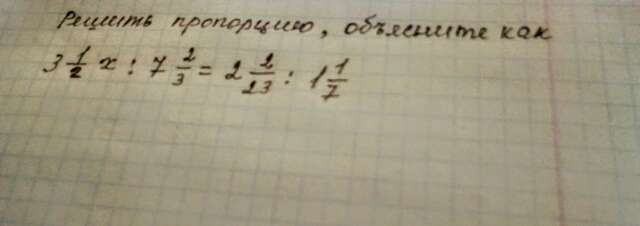 Решить пропорцию, объясните как
3 1/2 x : 7 2/3 = 2 2/23 : 1 1/7